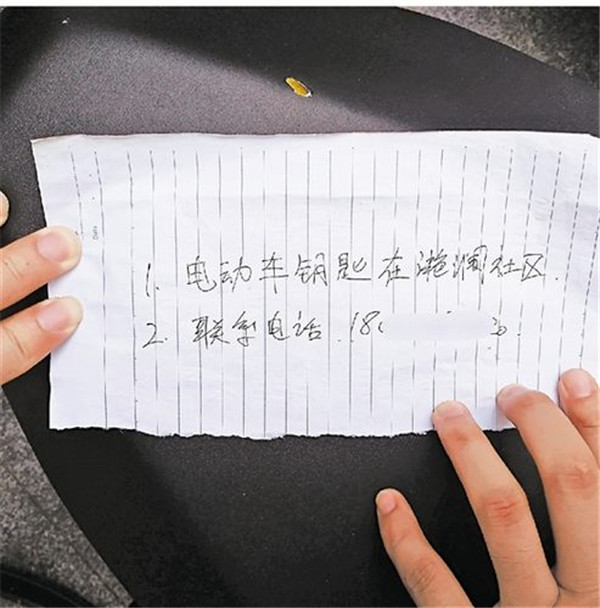 1. 电动车钥匙在滟澜社区.
2. 联系电话.18